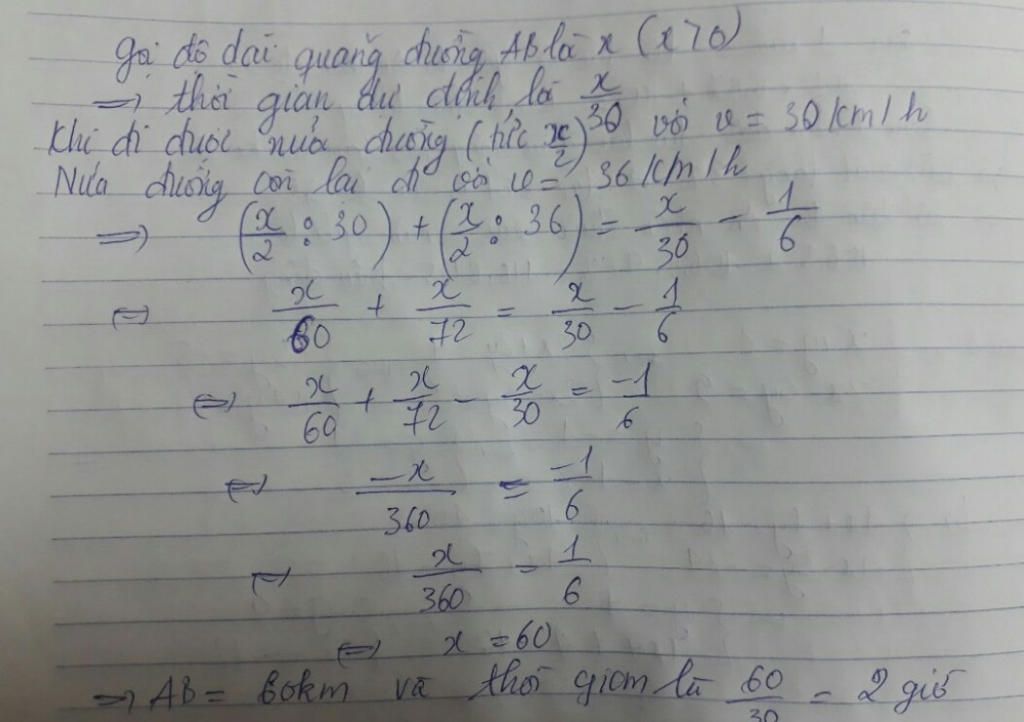 gọi độ dài quãng đường AB là x (x>0)
=> thời gian dự định là x/30
Khi đi được nửa đường (tức x/2) với v = 30 km/h
Nửa đường còn lại đi với v = 36 km/h
=> (x/2 : 30) + (x/2 : 36) = x/30 - 1/6
<=> x/60 + x/72 = x/30 - 1/6
<=> x/60 + x/72 - x/30 = -1/6
<=> -x/360 = -1/6
<=> x/360 = 1/6
<=> x = 60
=> AB = 60km và thời gian là 60/30 = 2 giờ